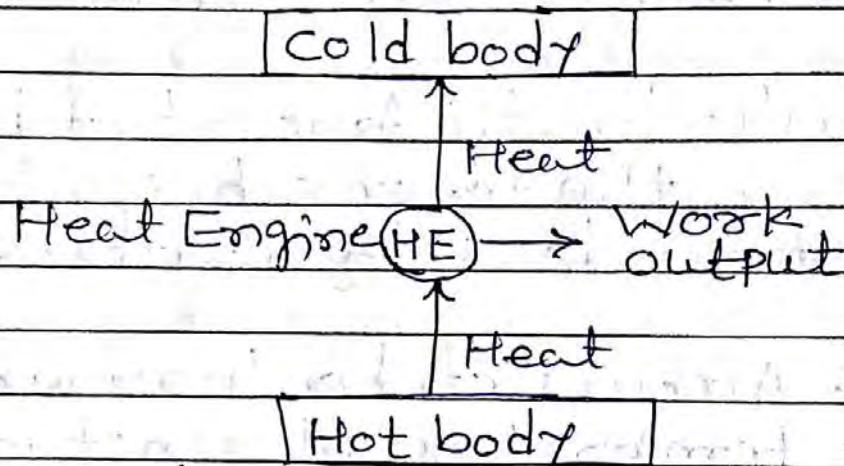 Cold body
Heat
Heat Engine HE Work
output
Heat
Hot body